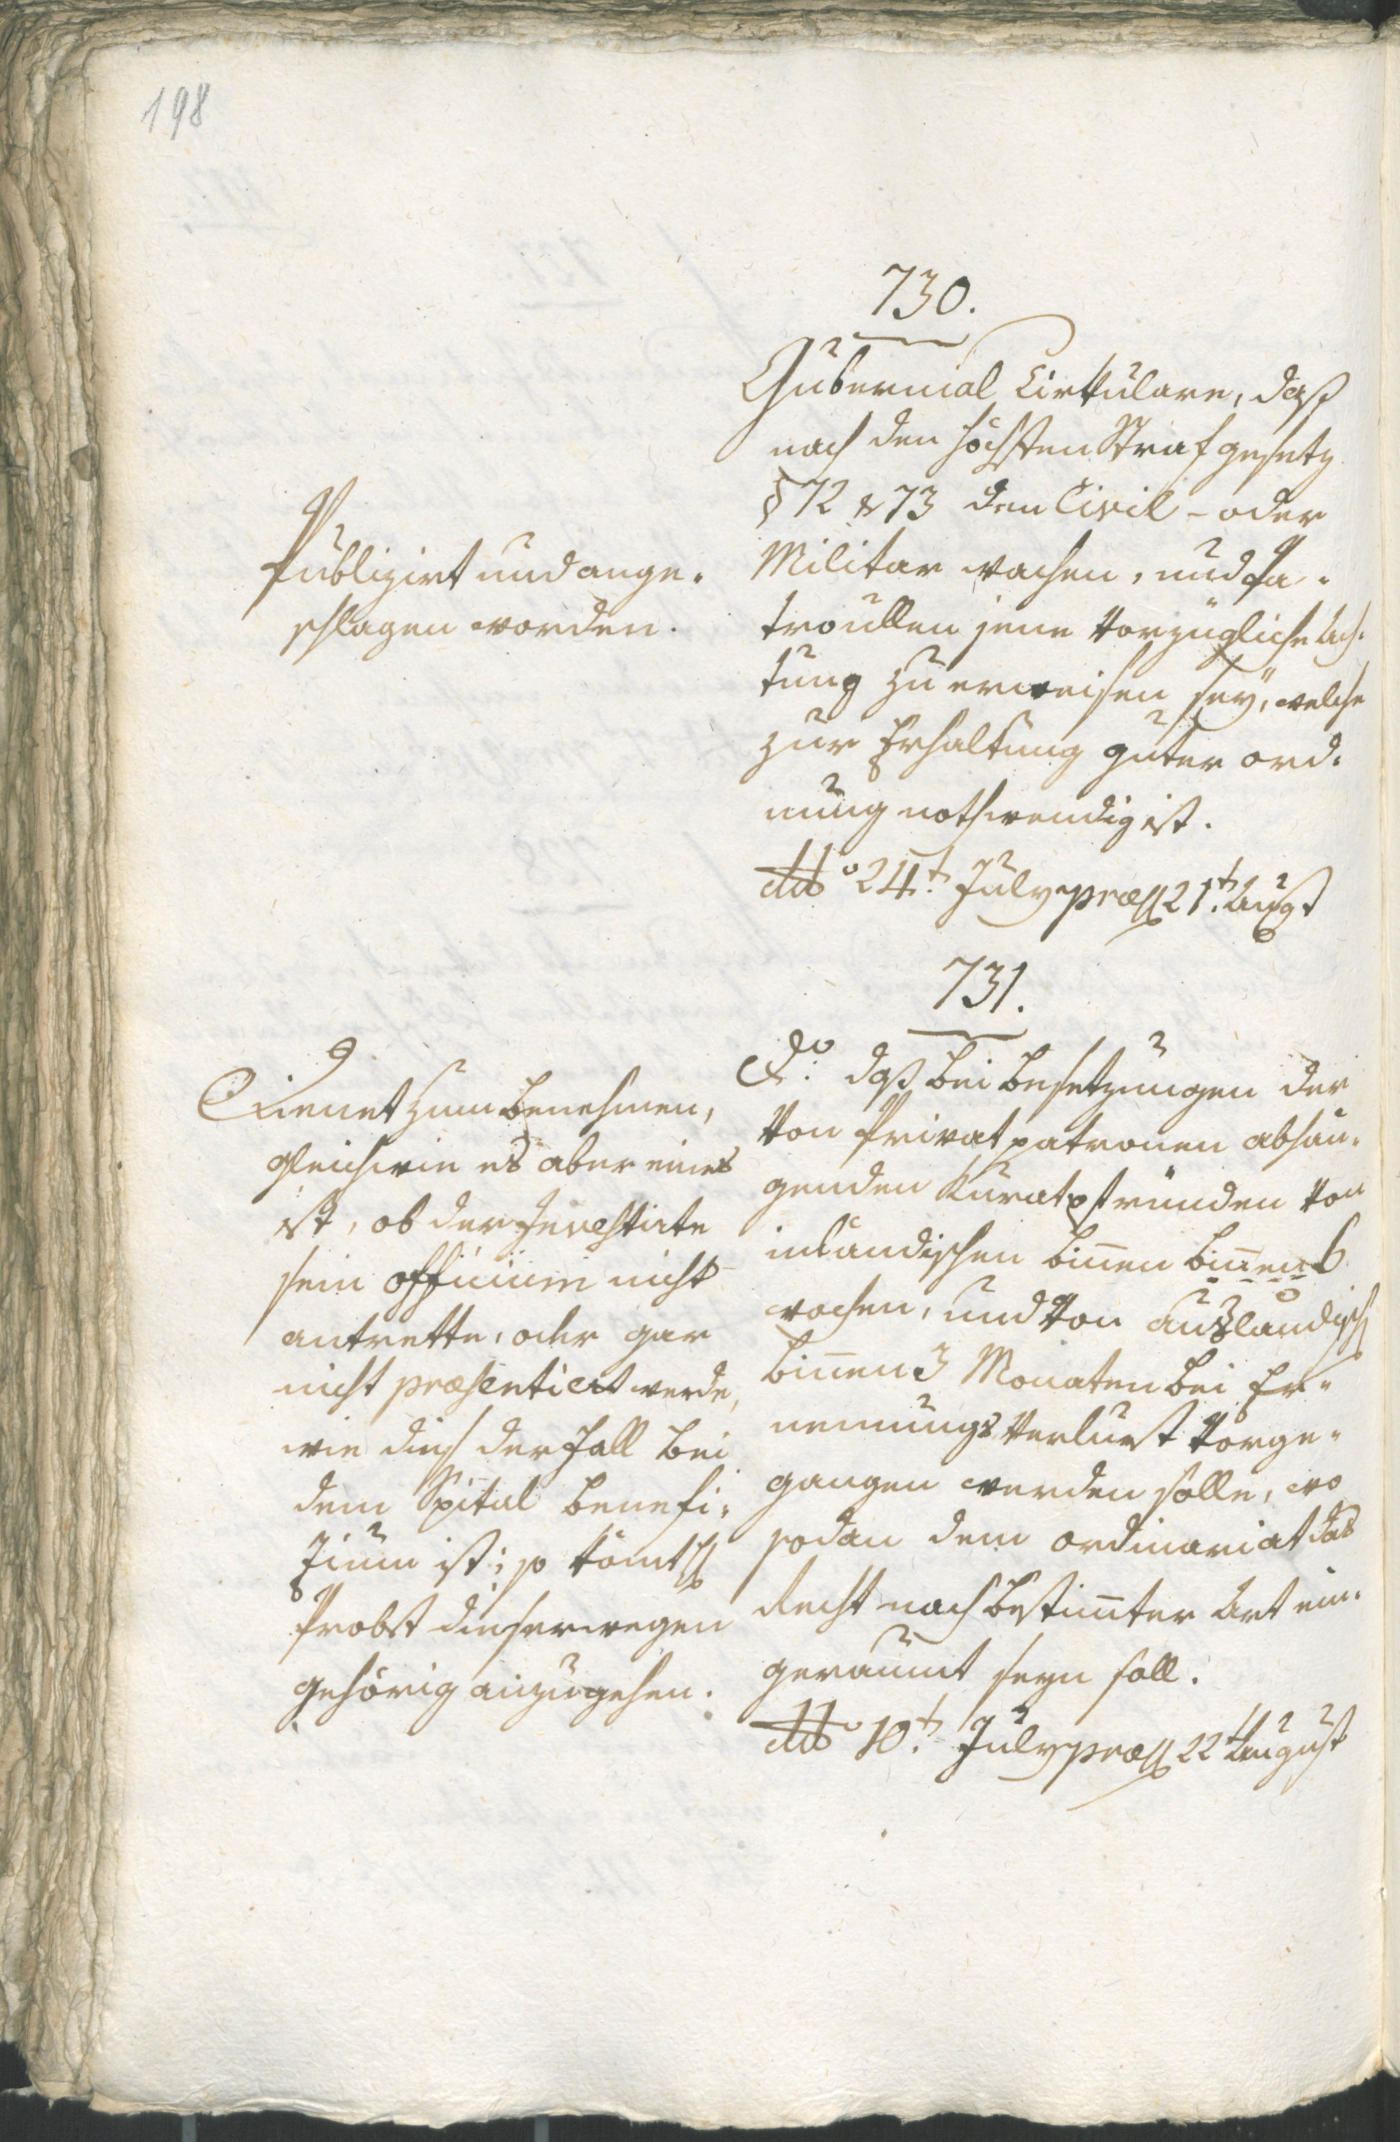 198
730.
Gubernial Cirkulare, daß
nach den höchsten Strafgesetz
§ 72 & 73 den Civil- oder
Militar wachen, und Pa-
troullen jene vorzügliche Ach-
tung zu erweisen seÿ, welche
zur Erhaltung guter ord-
nung nothwendig ist.
ddo 24t. July præs 21t. Augst
Publizirt und ange-
schlagen worden.
731.
do. daß bei Besetzungen der
von Privatpatronen abhan-
genden Kuratpfründen von
inländischen binnen binnen 6
wochen, und von ausländisch
binnen 3 Monaten bei Er-
nennungs Verlurst vorge-
gangen werden solle, wo
sodan dem ordinariat das
Recht nach bestimmter Art ein-
geraumt seyn soll.
ddo 10t. July præs 22t August
Dienet zum benehmen,
gleichwie es aber eines
ist, ob der Investirte
sein officium nicht
antrette, oder gar
nicht præsentiert werde,
wie dies der Fall bei
dem Spital Benefi-
zium ist; so kömt H
Probst dieserwegen
gehörig anzugehen.